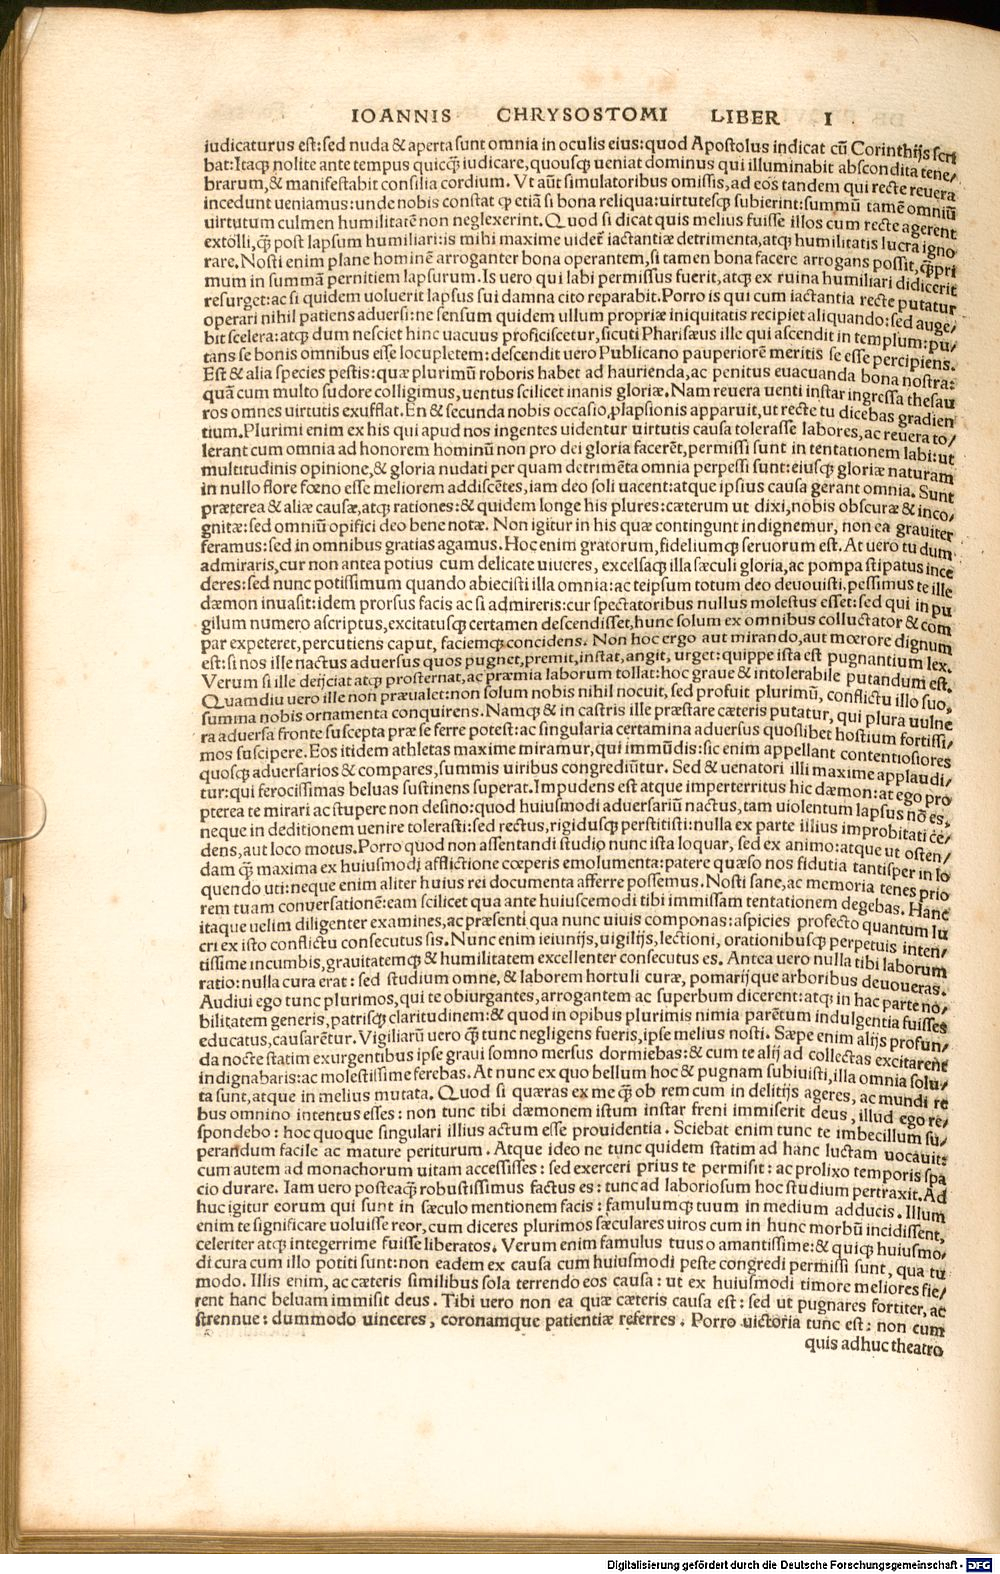 IOANNIS CHRYSOSTOMI LIBER I
iudicaturus est:sed nuda & aperta sunt omnia in oculis eius:quod Apostolus indicat cū Corinthijs scri
bat:Itaqꝫ nolite ante tempus quicq̄ iudicare,quousqꝫ ueniat dominus qui illuminabit abscondita tene/
brarum,& manifestabit consilia cordium. Vt aūt simulatoribus omissis,ad eos tandem qui recte reuera
incedunt ueniamus:unde nobis constat ꝙ etiā si bona reliqua:uirtutesqꝫ subierint:summū tamē omniū
uirtutum culmen humilitatē non neglexerint. Quod si dicat quis melius fuisse illos cum recte agerent
extolli,q̄ post lapsum humiliari:is mihi maxime uider̄ iactantiæ detrimenta,atqꝫ humilitatis lucra igno
rare. Nosti enim plane hominē arroganter bona operantem,si tamen bona facere arrogans possit,q̄pri
mum in summā pernitiem lapsurum. Is uero qui labi permissus fuerit,atqꝫ ex ruina humiliari didicerit
resurget:ac si quidem uoluerit lapsus sui damna cito reparabit. Porro is qui cum iactantia recte putatur
operari nihil patiens aduersi:ne sensum quidem ullum propriæ iniquitatis recipiet aliquando:sed auge/
bit scelera:atqꝫ dum nesciet hinc uacuus proficiscetur,sicuti Pharisæus ille qui ascendit in templum:pu/
tans se bonis omnibus esse locupletem:descendit uero Publicano pauperiorē meritis se esse percipiens.
Est & alia species pestis:quæ plurimū roboris habet ad haurienda,ac penitus euacuanda bona nostra:
quā cum multo sudore colligimus,uentus scilicet inanis gloriæ. Nam reuera uenti instar ingressa thesau
ros omnes uirtutis exufflat. En & secunda nobis occasio,plapsionis apparuit,ut recte tu dicebas gradien
tium. Plurimi enim ex his qui apud nos ingentes uidentur uirtutis causa tolerasse labores,ac reuera to/
lerant cum omnia ad honorem hominū non pro dei gloria facerēt,permissi sunt in tentationem labi:ut
multitudinis opinione,& gloria nudati per quam detrimēta omnia perpessi sunt:eiusqꝫ gloriæ naturam
in nullo flore fœno esse meliorem addiscētes,iam deo soli uacent:atque ipsius causa gerant omnia. Sunt
præterea & aliæ causæ,atqꝫ rationes:& quidem longe his plures:cæterum ut dixi,nobis obscuræ & inco/
gnitæ:sed omniū opifici deo bene notæ. Non igitur in his quæ contingunt indignemur, non ea grauiter
feramus:sed in omnibus gratias agamus. Hoc enim gratorum,fideliumqꝫ seruorum est. At uero tu dum
admiraris,cur non antea potius cum delicate uiueres, excelsaqꝫ illa sæculi gloria,ac pompa stipatus ince
deres:sed nunc potissimum quando abiecisti illa omnia:ac teipsum totum deo deuouisti, pessimus te ille
dæmon inuasit:idem prorsus facis ac si admireris:cur spectatoribus nullus molestus esset:sed qui in pu
gilum numero ascriptus,excitatusqꝫ certamen descendisset,hunc solum ex omnibus colluctator & com
par expeteret,percutiens caput, faciemqꝫ concidens. Non hoc ergo aut mirando,aut mœrore dignum
est:si nos ille nactus aduersus quos pugnet,premit,instat,angit, urget:quippe ista est pugnantium lex.
Verum si ille deijciat atqꝫ prosternat,ac præmia laborum tollat:hoc graue & intolerabile putandum est.
Quamdiu uero ille non præualet:non solum nobis nihil nocuit, sed profuit plurimū, conflictu illo suo,
summa nobis ornamenta conquirens. Namqꝫ & in castris ille præstare cæteris putatur, qui plura uulne
ra aduersa fronte suscepta præ se ferre potest:ac singularia certamina aduersus quoslibet hostium fortissi/
mos suscipere. Eos itidem athletas maxime miramur,qui immūdis:sic enim appellant contentiosiores
quosqꝫ aduersarios & compares,summis uiribus congrediūtur. Sed & uenatori illi maxime applaudi/
tur:qui ferocissimas beluas sustinens superat. Impudens est atque imperterritus hic dæmon:at ego pro
pterea te mirari ac stupere non desino:quod huiusmodi aduersariū nactus,tam uiolentum lapsus nō es,
neque in deditionem uenire tolerasti:sed rectus,rigidusqꝫ perstitisti:nulla ex parte illius improbitati ce/
dens,aut loco motus. Porro quod non assentandi studio nunc ista loquar, sed ex animo:atque ut osten/
dam q̄ maxima ex huiusmodi afflictione cœperis emolumenta:patere quæso nos fidutia tantisper in lo
quendo uti:neque enim aliter huius rei documenta afferre possemus. Nosti sane,ac memoria tenes prio
rem tuam conuersationē:eam scilicet qua ante huiuscemodi tibi immissam tentationem degebas. Hanc
itaque uelim diligenter examines,ac præsenti qua nunc uiuis componas:aspicies profecto quantum lu
cri ex isto conflictu consecutus sis. Nunc enim ieiunijs,uigilijs,lectioni, orationibusqꝫ perpetuis inten/
tissime incumbis,grauitatemqꝫ & humilitatem excellenter consecutus es. Antea uero nulla tibi laborum
ratio:nulla cura erat: sed studium omne, & laborem hortuli curæ, pomarijque arboribus deuoueras.
Audiui ego tunc plurimos,qui te obiurgantes,arrogantem ac superbum dicerent:atqꝫ in hac parte no/
bilitatem generis, patrisqꝫ claritudinem:& quod in opibus plurimis nimia parētum indulgentia fuisses
educatus,causarētur. Vigiliarū uero q̄ tunc negligens fueris,ipse melius nosti. Sæpe enim alijs profun/
da nocte statim exurgentibus ipse graui somno mersus dormiebas:& cum te alij ad collectas excitarent
indignabaris:ac molestissime ferebas. At nunc ex quo bellum hoc & pugnam subiuisti,illa omnia solu/
ta sunt,atque in melius mutata. Quod si quæras ex me q̄ ob rem cum in delitijs ageres, ac mundi re
bus omnino intentus esses: non tunc tibi dæmonem istum instar freni immiserit deus, illud ego re/
spondebo: hoc quoque singulari illius actum esse prouidentia. Sciebat enim tunc te imbecillum su/
perandum facile ac mature periturum. Atque ideo ne tunc quidem statim ad hanc luctam uocauit:
cum autem ad monachorum uitam accessisses: sed exerceri prius te permisit: ac prolixo temporis spa
cio durare. Iam uero posteaq̄ robustissimus factus es: tunc ad laboriosum hoc studium pertraxit. Ad
huc igitur eorum qui sunt in sæculo mentionem facis: famulumqꝫ tuum in medium adducis. Illum
enim te significare uoluisse reor, cum diceres plurimos sæculares uiros cum in hunc morbū incidissent,
celeriter atqꝫ integerrime fuisse liberatos. Verum enim famulus tuus o amantissime:& quiqꝫ huiusmo/
di cura cum illo potiti sunt:non eadem ex causa cum huiusmodi peste congredi permissi sunt, qua tu
modo. Illis enim, ac cæteris similibus sola terrendo eos causa: ut ex huiusmodi timore meliores fie/
rent hanc beluam immisit deus. Tibi uero non ea quæ cæteris causa est: sed ut pugnares fortiter, ac
strennue: dummodo uinceres, coronamque patientiæ referres. Porro uictoria tunc est: non cum
quis adhuc theatro
Digitalisierung gefördert durch die Deutsche Forschungsgemeinschaft - DFG